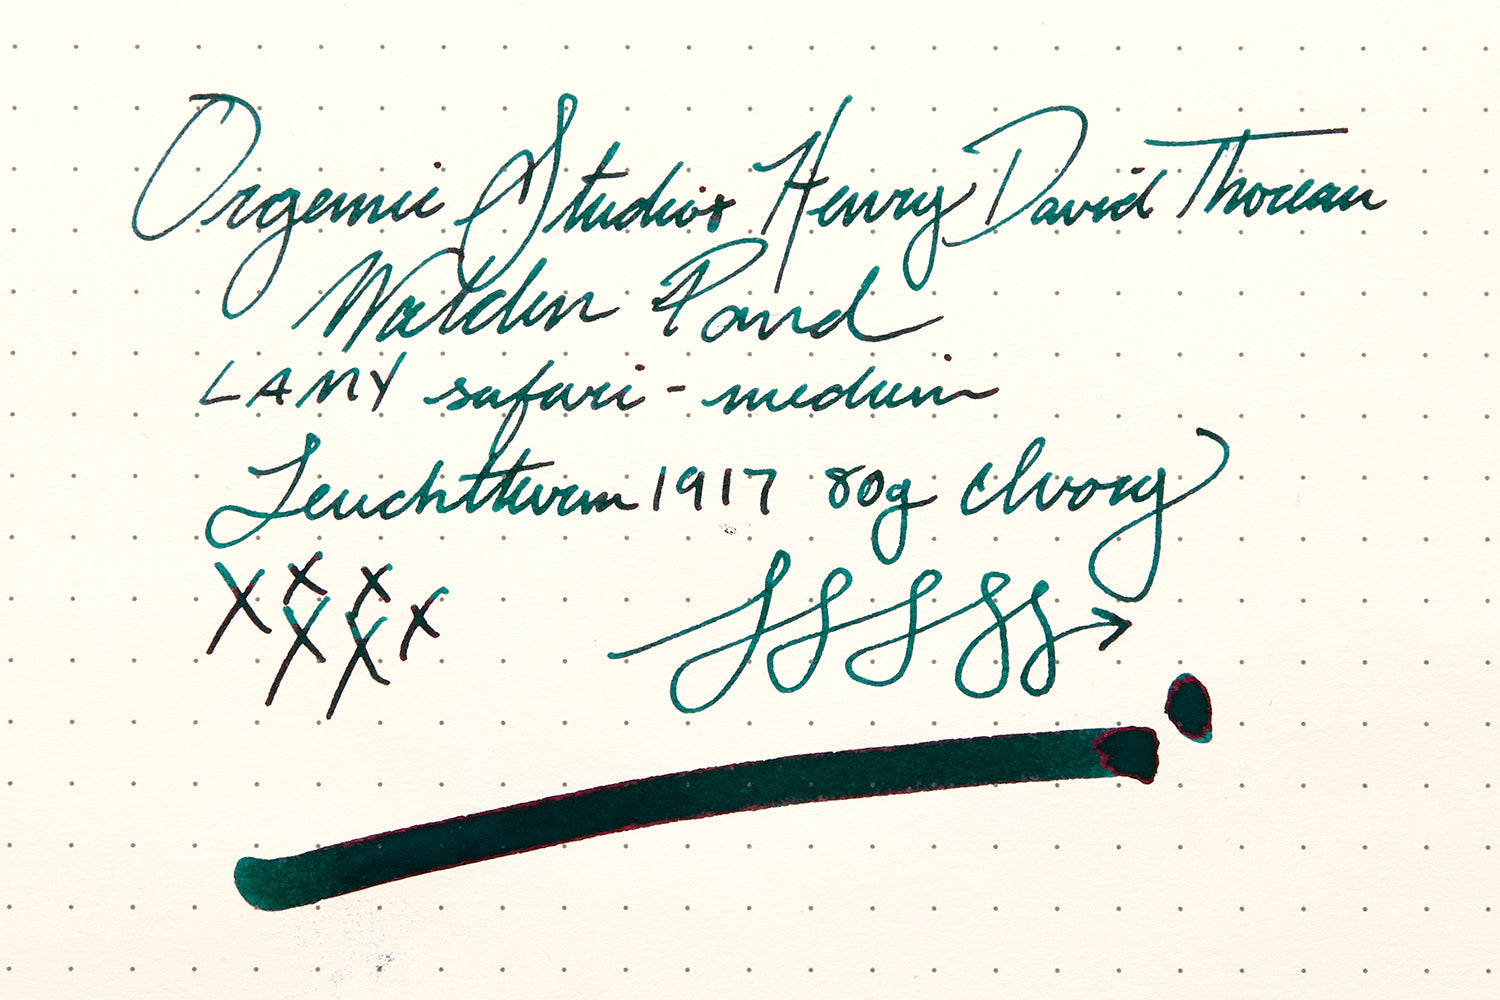 Organic Studios Henry David Thoreau
Walden Pond
LAMY safari - medium
Leuchtturm 1917 80g Ivory